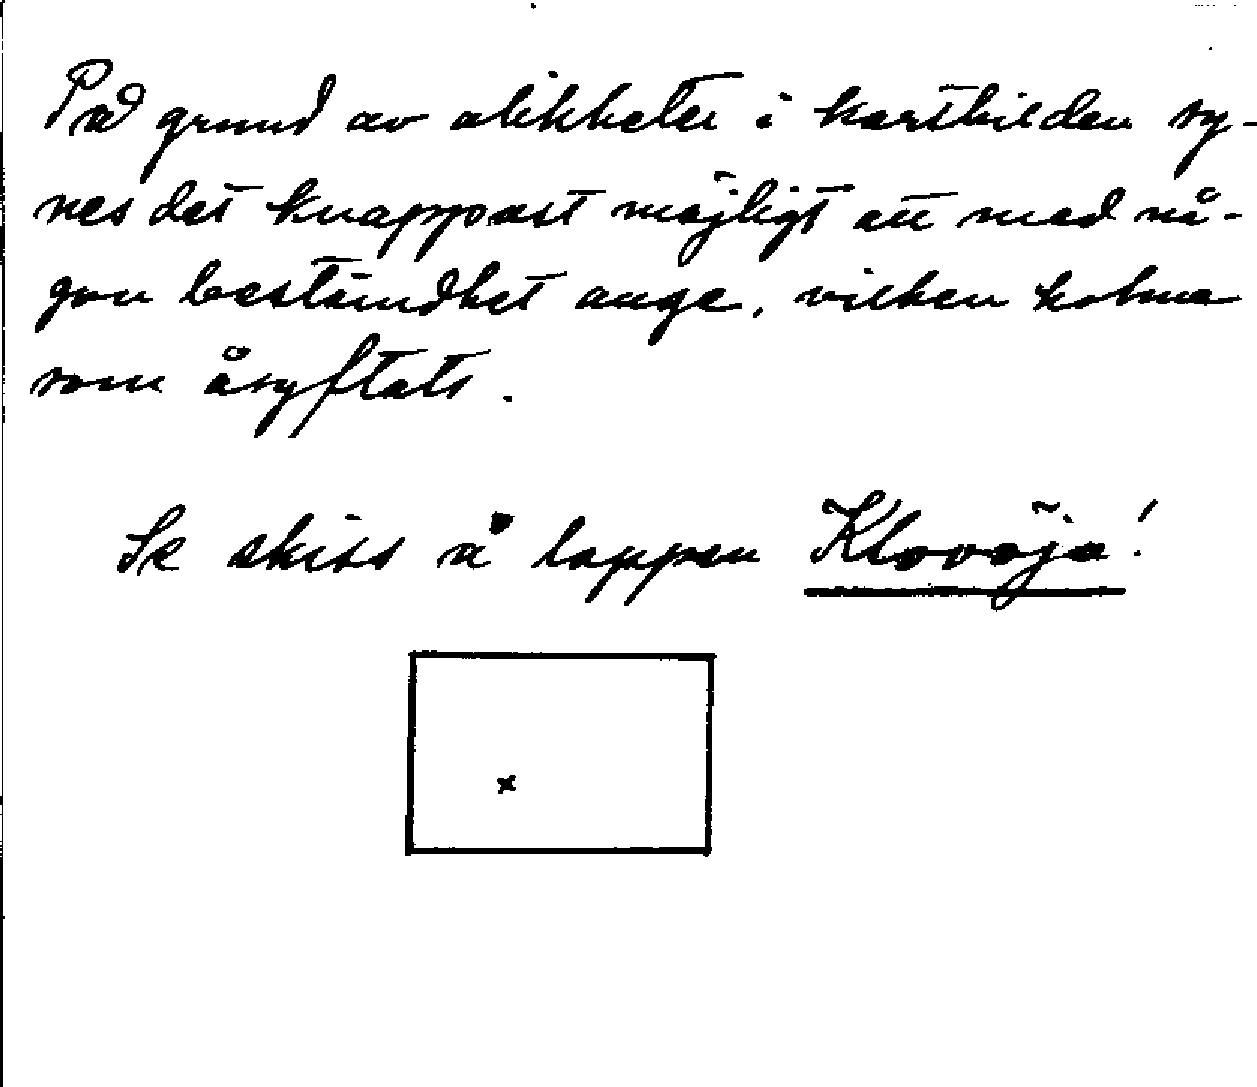 På grund av olikheter i kartbilden sy-
nes det knappast möjligt att med nå-
gon bestämdhet ange, vilken holme
som åsyftats.
Se skiss å lappen Klovöja!
x